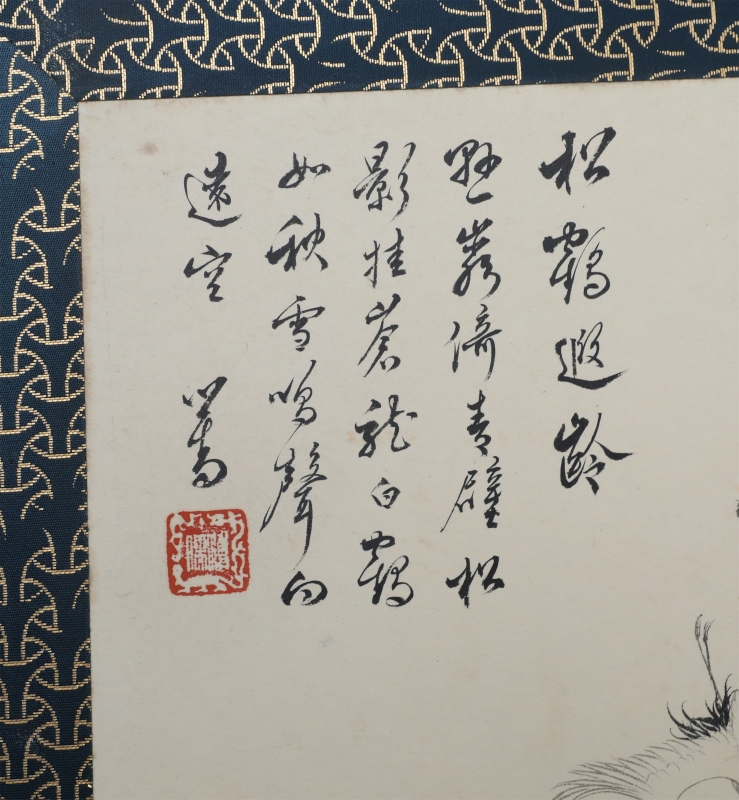 松鶴遐齡
懸崖倚青壁松
影挂蒼龍白鶴
如秋雪鳴聲向
遠空 心畬